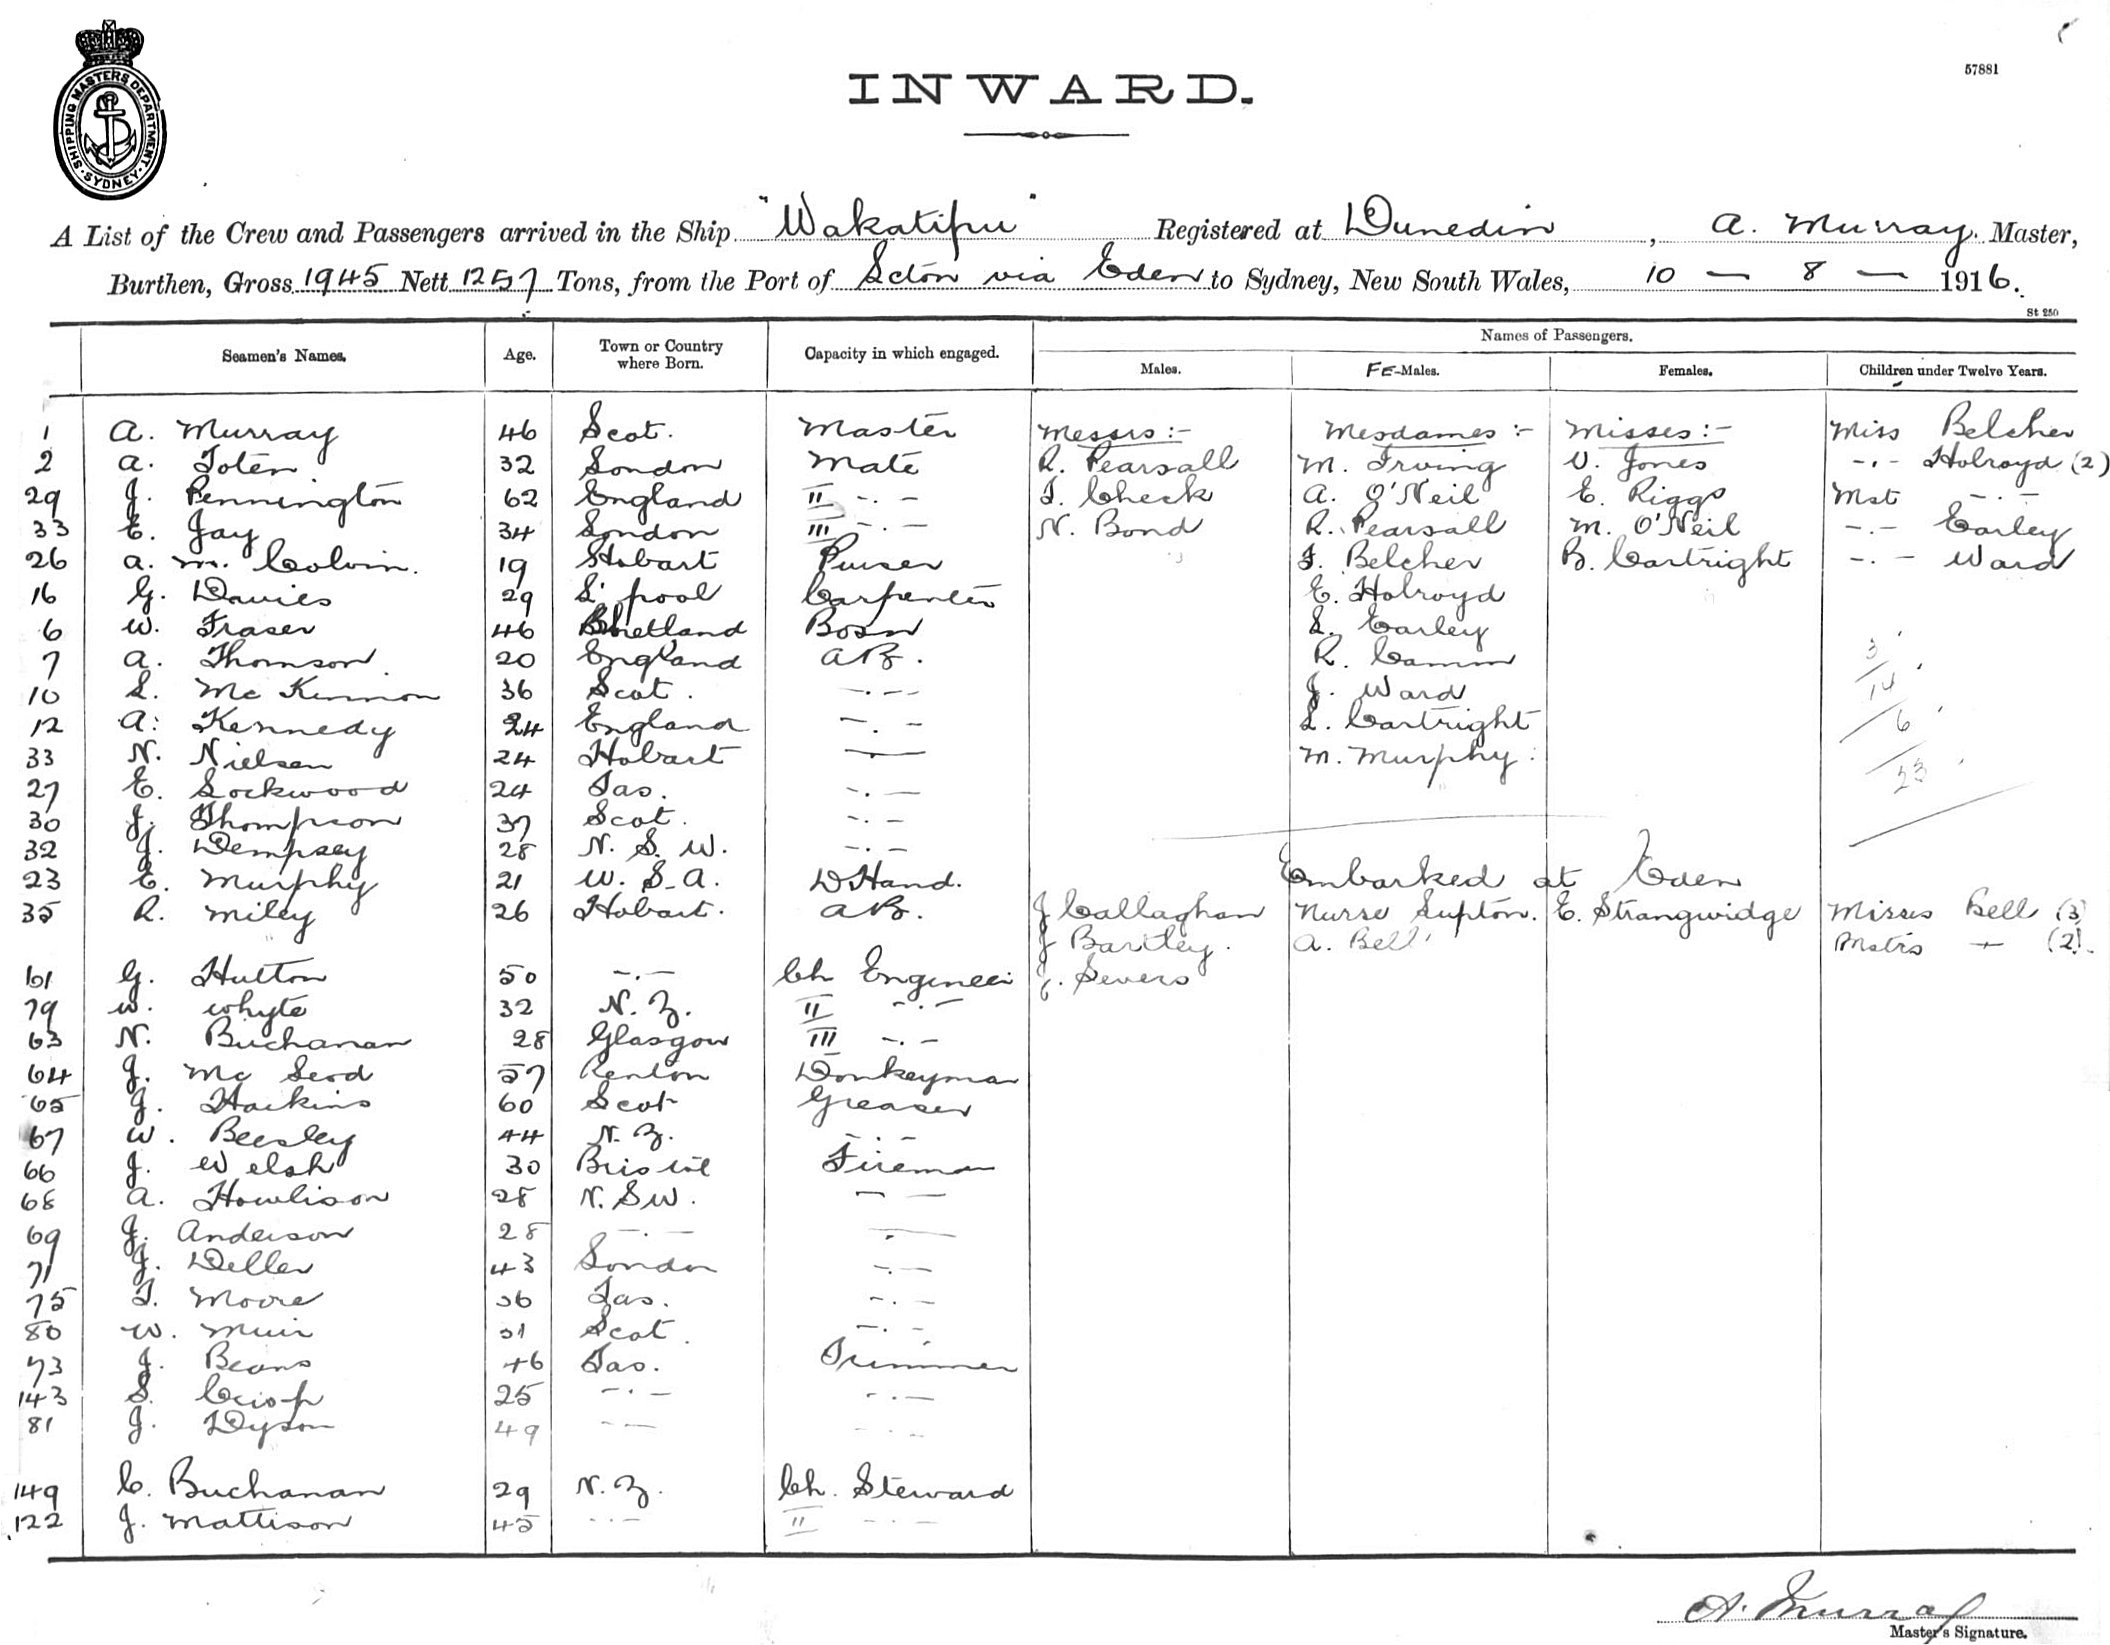 SHIPPING MASTERS DEPARTMENT. SYDNEY
57881
INWARD.
A List of the Crew and Passengers arrived in the Ship "Wakatipu" Registered at Dunedin, A. Murray. Master,
Burthen, Gross 1945 Nett 1257 Tons, from the Port of Lcton via Eden to Sydney, New South Wales, 10 — 8 — 1916.
St 250
Seamen's Names. Age. Town or Country where Born. Capacity in which engaged. Names of Passengers.
Males. FE-Males. Females. Children under Twelve Years.
1 A. Murray 46 Scot. Master Messrs :- Mesdames :- Misses :- Miss Belcher
2 A. Toten 32 London Mate R. Pearsall M. Irving V. Jones -.- Holroyd (2)
29 J. Pennington 62 England II -.- T. Cheek A. O'Neil E. Riggs Mst -.-
33 E. Jay 34 London III -.- N. Bond R. Pearsall M. O'Neil -.- Earley
26 A. M. Colvin. 19 Hobart Purser F. Belcher B. Cartright -.- Ward
16 G. Davies 29 L'pool Carpenter E. Holroyd
6 W. Fraser 46 Shetland Bosn L. Earley
7 A. Thomson 20 England AB. R. Camm 3
10 L. McKinnon 36 Scot. -.-- J. Ward 14
12 A. Kennedy 24 England -.- L. Cartright 6
33 N. Nielsen 24 Hobart — M. Murphy. 23
27 E. Lockwood 24 Tas. -.-
30 J. Thompson 37 Scot. -.-
32 J. Dempsey 28 N. S. W. -.-
23 E. Murphy 21 W. S. A. D Hand. Embarked at Eden
35 R. Miley 26 Hobart. AB. J Callaghan Nurse Lupton. E. Strangwidge Misses Bell (3)
J Bartley. A. Bell Mstrs — (2).
61 G. Hutton 50 -.- Ch Engineer J. Severs
79 W. Whyte 32 N. Z. II -.-
63 N. Buchanan 28 Glasgow III -.-
64 J. McLeod 57 Renton Donkeyman
65 J. Haikins 60 Scot Greaser
67 W. Beesley 44 N. Z. -.-
66 J. Welsh 30 Bristol Fireman
68 A. Howlison 28 N. S W. - —
69 J. Anderson 28 -.- -.-
71 J. Deller 43 London -.-
75 T. Moore 36 Tas. -.-
80 W. Muir 31 Scot. -.-
73 J. Beans 46 Tas. Trimmer
143 S. Crisp 25 -.- -.-
81 J. Dyson 49 -- -.-
149 C. Buchanan 29 N. Z. Ch. Steward
122 J. Mattison 45 -.- II -.-
A. Murray
Master's Signature.